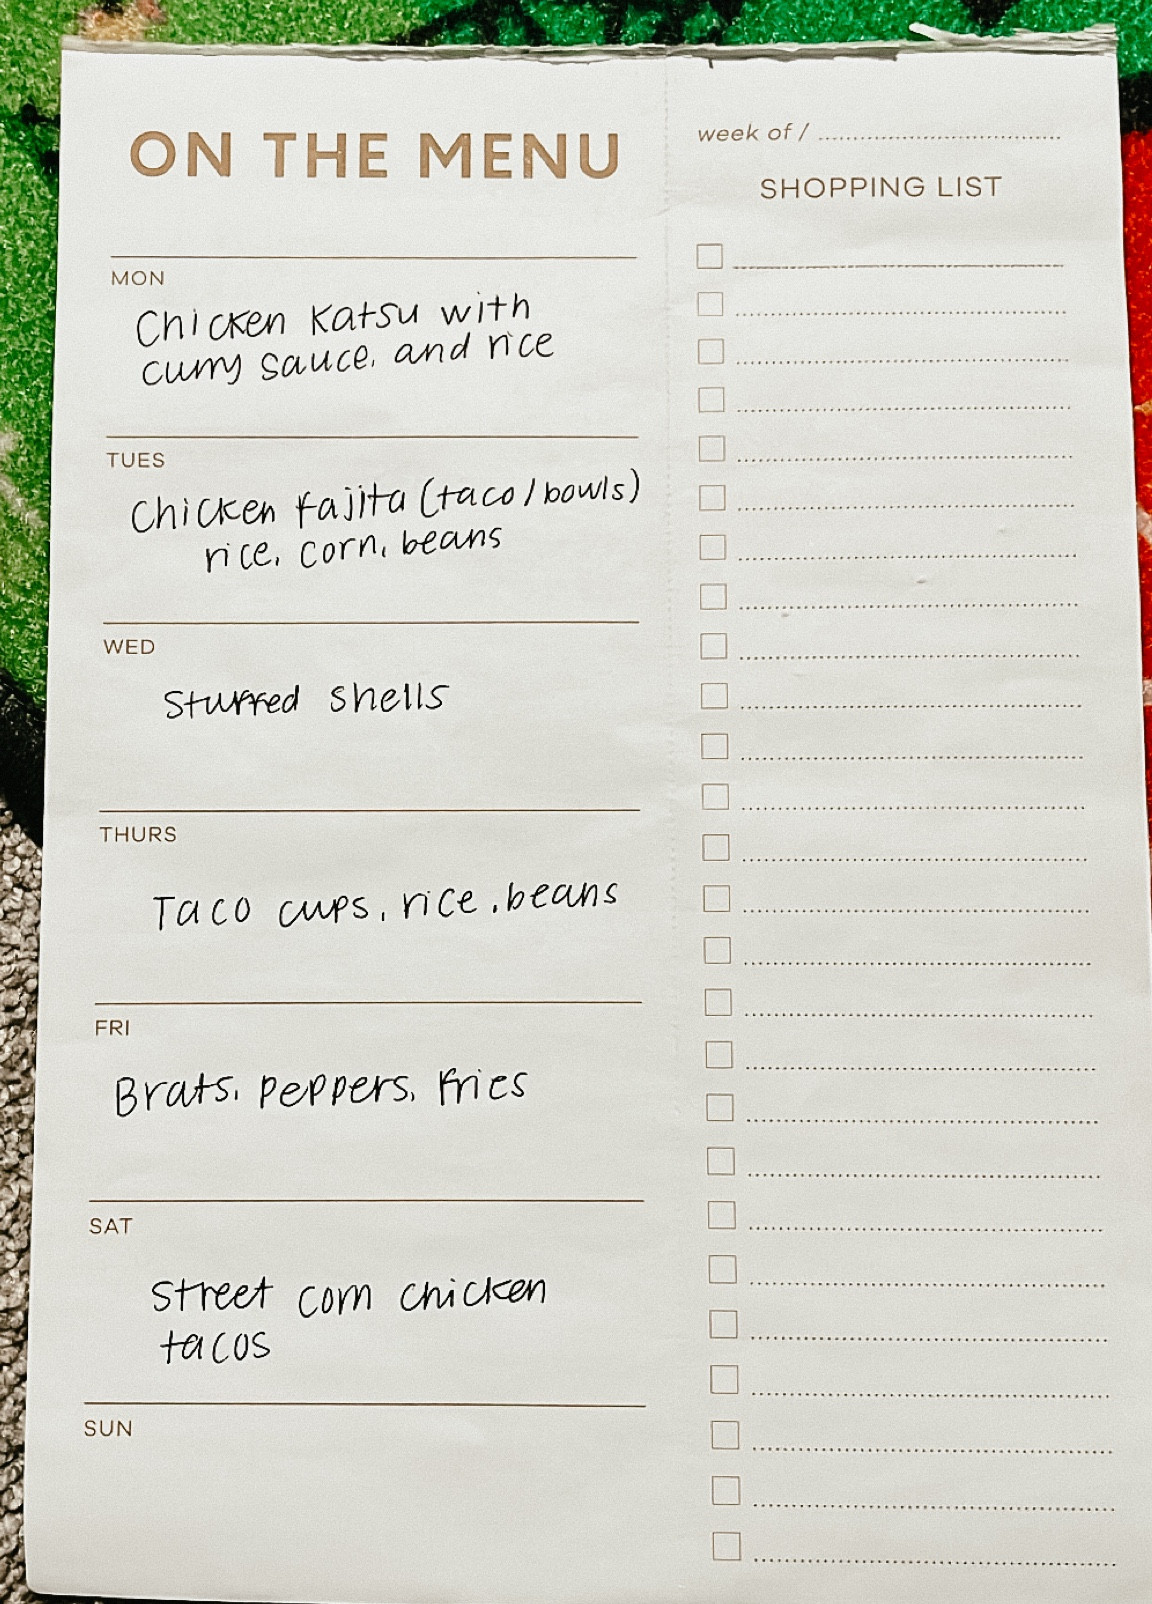 ON THE MENU
week of /
SHOPPING LIST
MON
Chicken Katsu with
curry sauce, and rice
TUES
Chicken fajita (taco/bowls)
rice, corn, beans
WED
Stuffed shells
THURS
Taco cups, rice, beans
FRI
Brats, peppers, fries
SAT
Street corn chicken
tacos
SUN